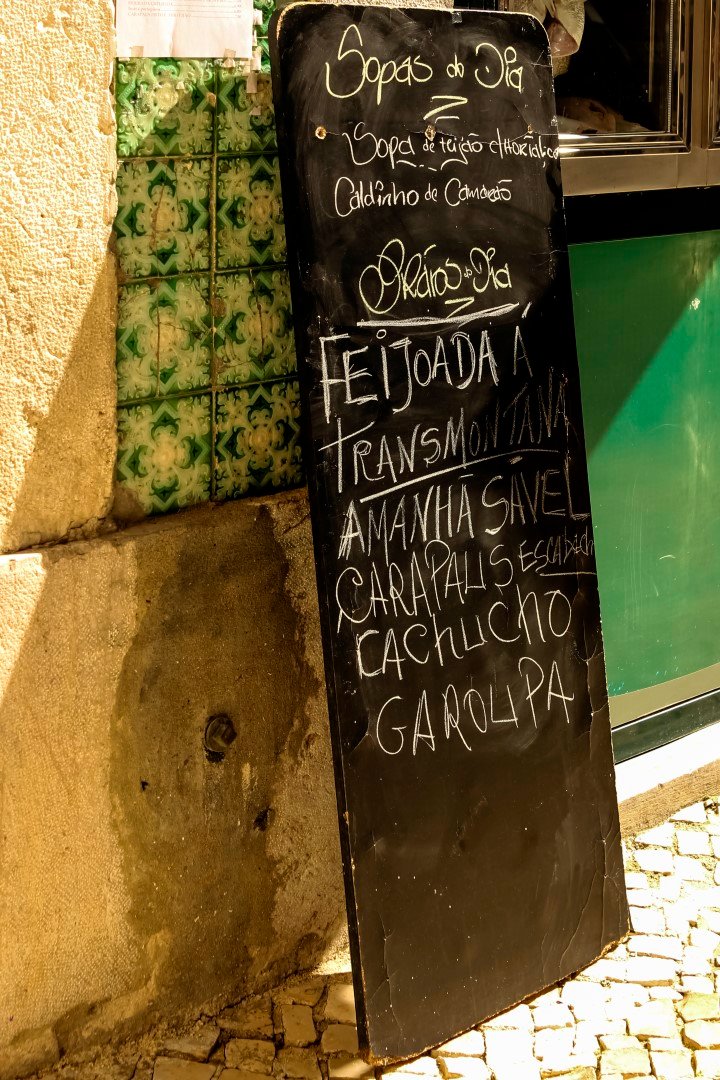 Sopas do Dia
Sopa de feijão c/Hortaliça
Caldinho de Camarão
Pratos do Dia
FEIJOADA Á
TRANSMONTANA
AMANHÃ SÁVEL
CARAPAUS ESCABECH
CACHUCHO
GAROUPA